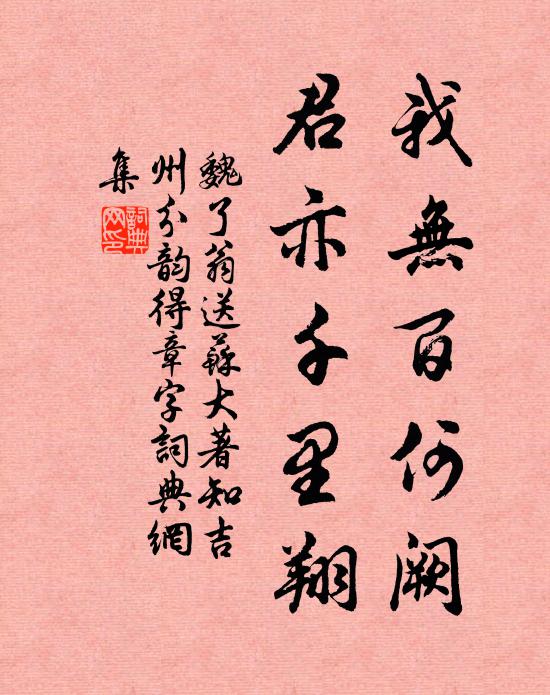 我無百何闕
君亦千里翔
魏了翁送蘇大著知吉
州分韵得章字詞典網
集
詞典
网印